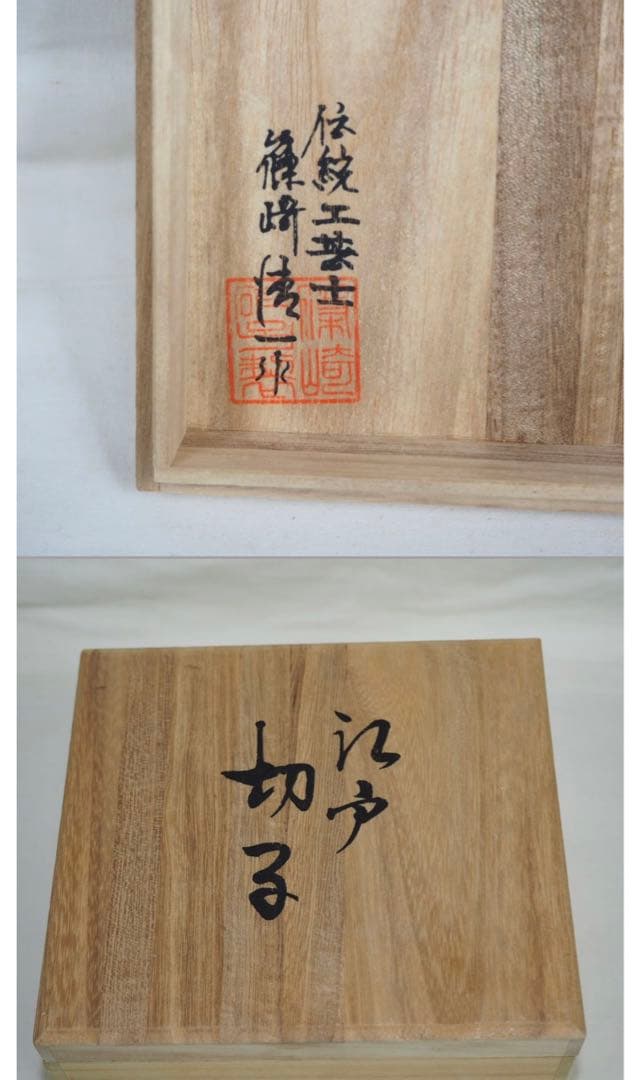 伝統工芸士
篠﨑清一作
江戸
切子